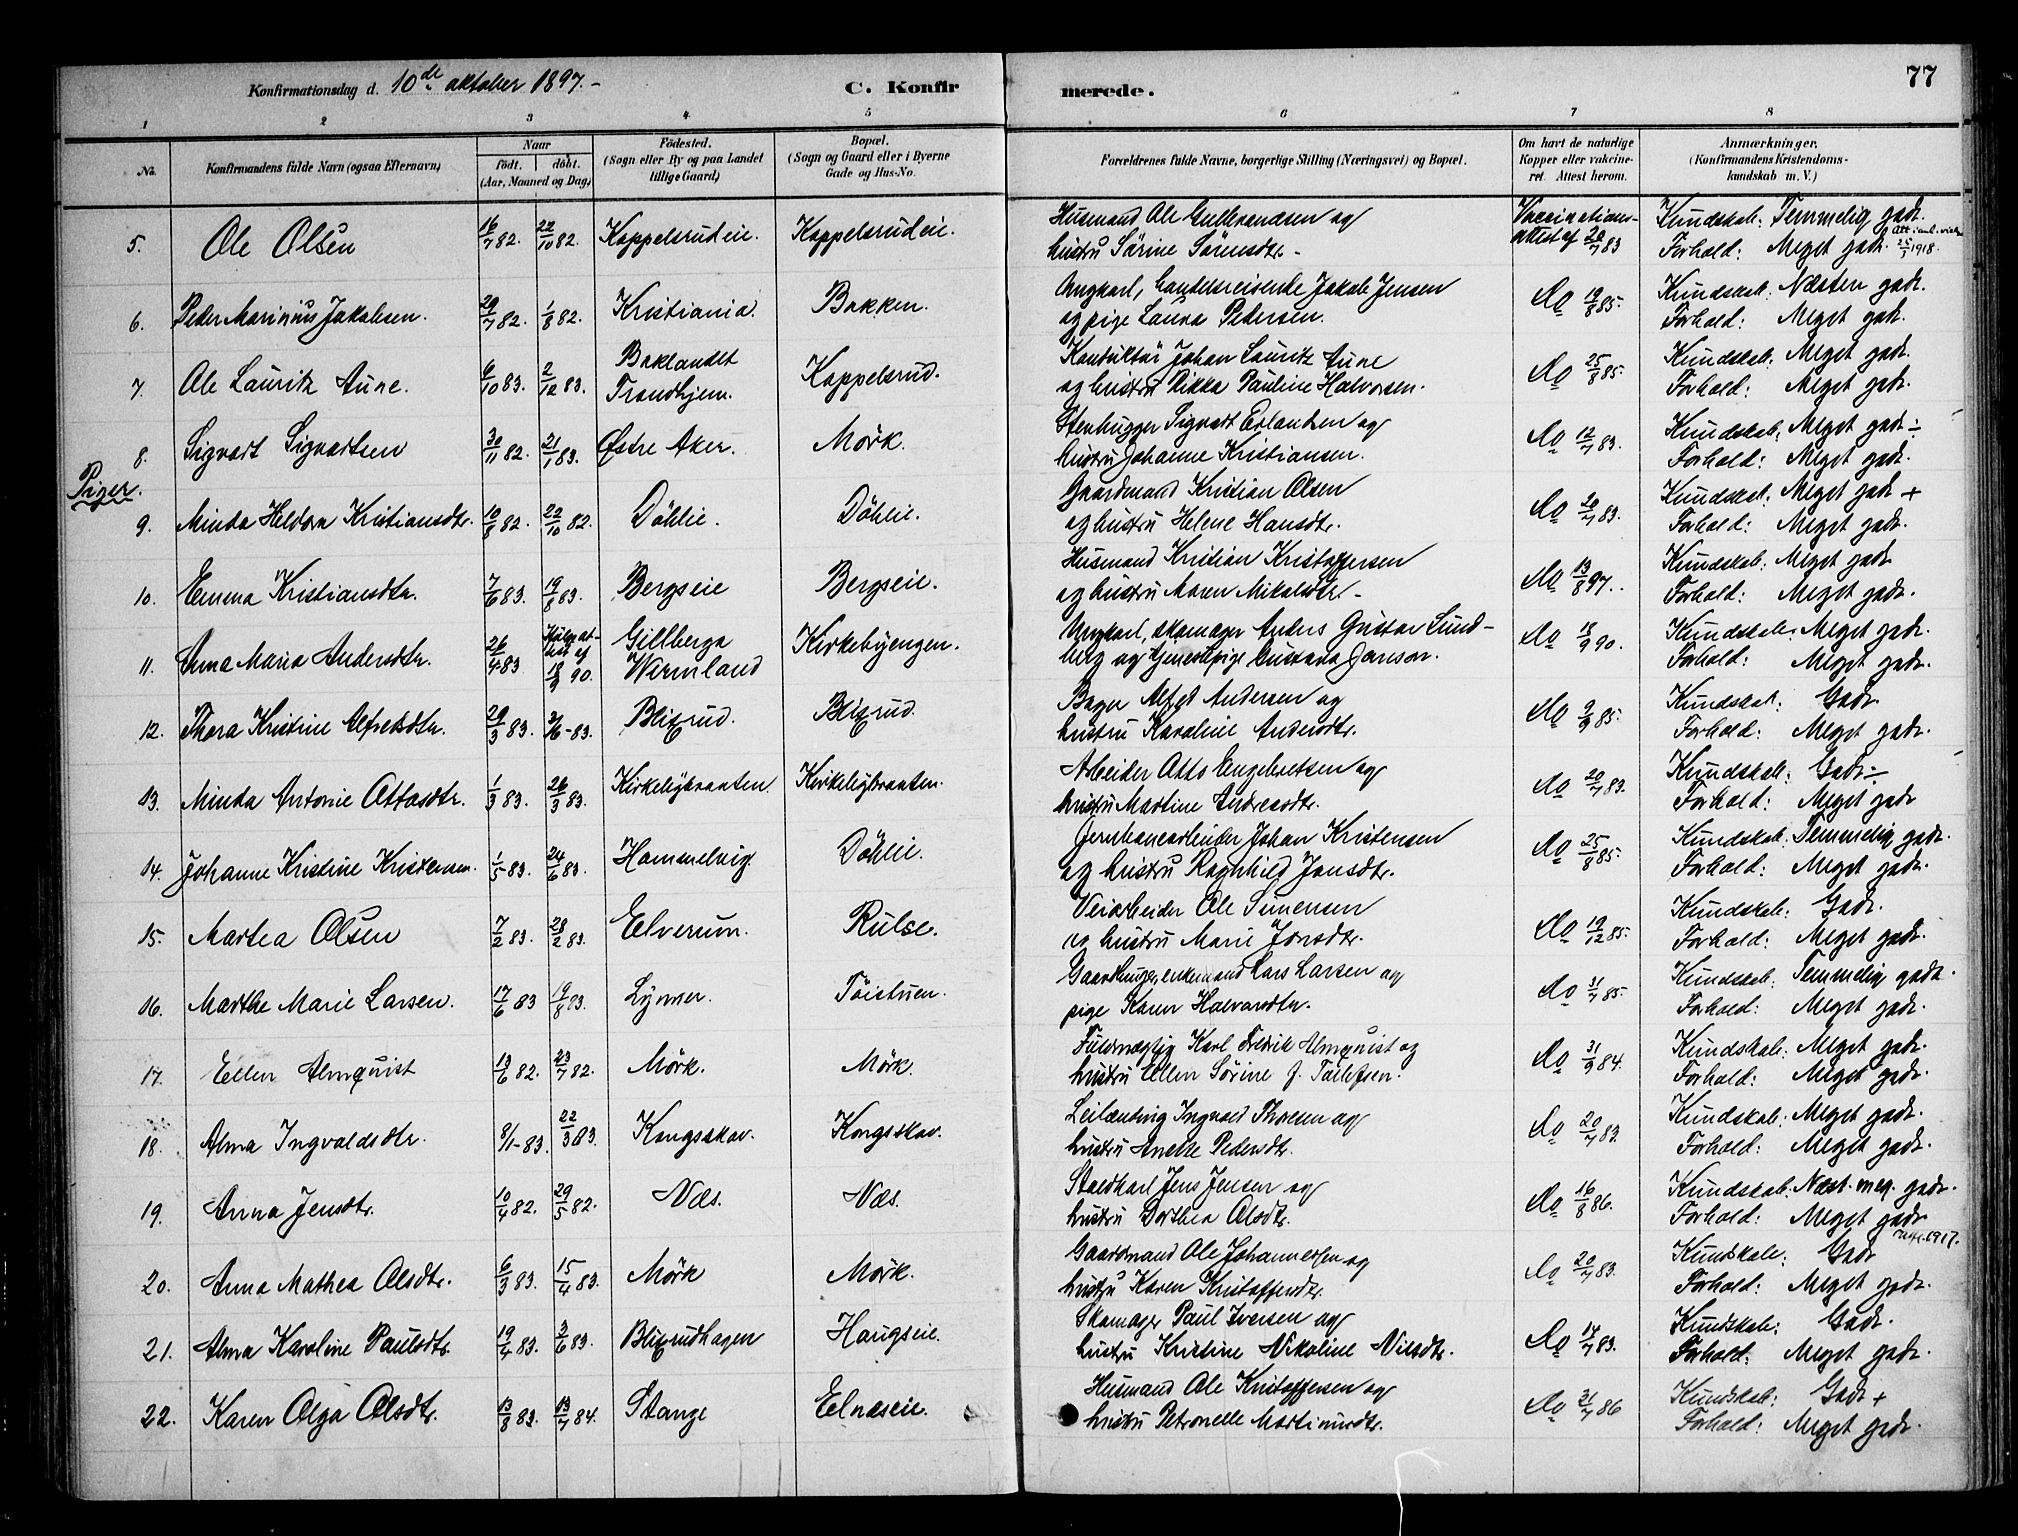 Konfirmationsdag d. 10de oktober 1897.- C. Konfirmerede. 77
1 2 3 4 5 6 7 8
No. Konfirmandens fulde Navn (ogsaa Efternavn) Naar födt. döbt. (Aar, Maaned og Dag) Födested. (Sogn eller By og paa Landet tillige Gaard) Bopæl. (Sogn og Gaard eller i Byerne Gade og Hus-No. Forældrenes fulde Navne, borgerlige Stilling (Næringsvei) og Bopæl. Om havt de naturlige Kopper eller vakcineret. Attest herom. Anmærkninger. (Konfirmandens Kristendomskundskab m. V.)
5. Ole Olsen 16/7 82. 22/10 82. Koppelsrudeie. Koppelsrudeie. Husmand Ole Gulbrandsen og Vaccinations- Kundskab: Temmelig godt.
hustru Sörine Sörensdtr.- attest af 20/7 83 Forhold: Meget godt. 25/1 1918.
6. Peder Marinius Jakobsen. 20/7 82. 1/8 82. Kristiania. Bakken. Ungkarl, handelsreisende Jakob Jensen do 19/8 85. Kundskab: Næsten godt.
og pige Laura Pedersen. Forhold: Meget godt.
7. Ole Lauritz Aune. 6/10 83. 2/12 83. Baklandet Trondhjem. Koppelsrud. Konduktör Johan Lauritz Aune do 25/8 85. Kundskab: Meget godt.
og hustru Rikka Pauline Halvorsen. Forhold: Meget godt.
8. Sigvart Sigvartsen 30/11 82. 21/1 83. Østre Aker. Mörk. Stenhugger Sigvart Erlandsen og do 12/7 83. Kundskab: Meget godt ÷
hustru Johanne Kristiansen. Forhold: Meget godt.
Piger.
9. Minda Heldora Kristiansdtr. 10/8 82. 22/10 82. Döhlie. Döhlie. Gaardmand Kristian Olsen do 20/7 83. Kundskab: Meget godt +
og hustru Helene Hansdtr. Forhold: Meget godt.
10. Emma Kristiansdtr. 7/6 83. 19/8 83. Bergseie Bergseie. Husmand Kristian Kristoffersen do 13/8 97. Kundskab: Meget godt
og hustru Maren Mikalsdtr.- Forhold: Meget godt.
11. Anna Maria Andersdtr. 26/4 83 18/9 90. Gillberga Wermland Kirkebyengen. Ungkarl, skomager Anders Gustav Sund- do 18/9 90. Kundskab: Meget godt.
berg og tjenestpige Gustava Janson. Forhold: Meget godt.
12. Thora Kristine Alfretsdtr. 20/3 83. 3/6-83. Blixrud. Blixrud. Bager Alfret Andersen og do 9/9 85. Kundskab: Godt.
hustru Karoline Andersdtr. Forhold: Meget godt.
13. Minda Antonie Ottosdtr. 1/3 83. 26/3 83. Kirkebybraaten. Kirkebybraaten. Arbeider Otto Engebretsen og do 20/7 83. Kundskab: Godt ÷
hustru Martine Andreasdtr. Forhold: Meget godt
14. Johanne Kristine Kristensen. 1/5-83. 24/6 83. Hommelvig Döhlie. Jernbanearbeider Johan Kristensen do 25/8 85. Kundskab: Temmelig godt.
og hustru Ragnhild Jonsdtr. Forhold: Meget godt.
15. Martea Olsen 7/2 83. 28/2 83. Elverum. Rulse. Veiarbeider Ole Simensen do 19/12 85. Kundskab: Godt.
og hustru Marie Jonsdtr. Forhold: Meget godt.
16. Marthe Marie Larsen. 17/6 83 19/8 83. Lymer. Töistuen. Gaardbruger, enkemand Lars Larsen og do 31/7 85. Kundskab: Temmelig godt.
pige Karen Halvorsdtr. Forhold: Meget godt.
17. Ellen Almquist 13/6 82. 23/7 82. Mörk. Mörk. Fuldmægtig Karl Fredrik Almquist og do 31/9 84. Kundskab: Meget godt.
hustru Ellen Sörine J. Tollefsen. Forhold: Meget godt.
18. Alma Ingvaldsdtr. 8/1-83. 22/3 83. Kongsskov. Kongsskov. Leilænding Ingvald Thoresen og do 20/7 83. Kundskab: Meget godt.
hustru Anette Pedersdtr. Forhold: Meget godt.
19. Anna Jensdtr. 10/4 82. 29/5 82. Næs. Næs. Staldkarl Jens Jensen og do 16/8 86. Kundskab: Næst. meg. godt.
hustru Dorthea Olsdtr. Forhold: Meget godt
20. Anna Mathea Olsdtr. 6/3 83. 15/4 83. Mörk Mörk. Gaardmand Ole Johannessen og do 20/7 83. Kundskab: Godt 1917.
hustru Karen Kristoffersdtr. Forhold: Meget godt.
21. Alma Karoline Paulsdtr. 19/4 83. 3/6 83. Blixrudhagen Haugseie. Skomager Paul Iversen og do 14/7 83. Kundskab: Godt.
hustru Kristine Nikoline Nilsdtr. Forhold: Meget godt.
22. Karen Olga Olsdtr. 13/8 83. 13/7 84. Stange Elnæseie. Husmand Ole Kristoffersen og do 31/7 86 Kundskab: Godt +
hustru Petronelle Martinusdtr. Forhold: Meget godt.